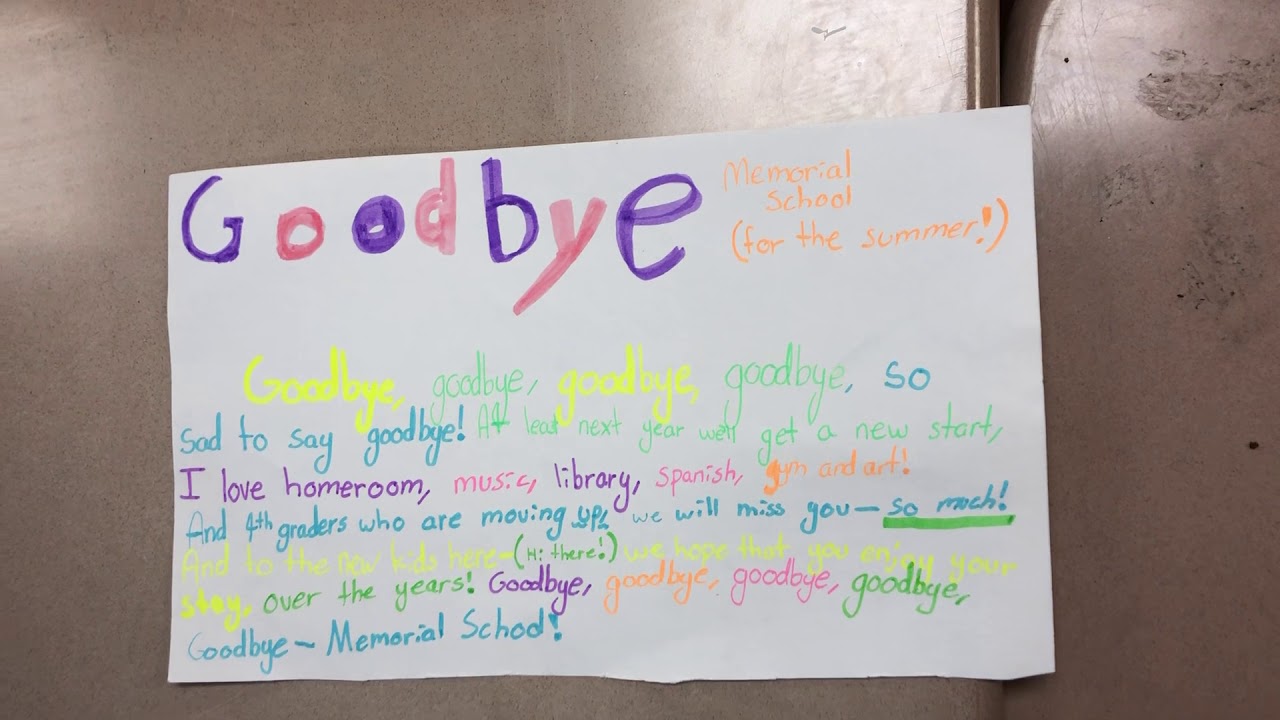 Goodbye
Memorial
School
(for the summer!)
Goodbye, goodbye, goodbye, goodbye, so
sad to say goodbye! At least next year we'll get a new start,
I love homeroom, music, library, spanish, gym and art!
And 4th graders who are moving up, we will miss you— so much!
And to the new kids here—(Hi there!) we hope that you enjoy your
stay, over the years! Goodbye, goodbye, goodbye, goodbye,
Goodbye ~ Memorial School!